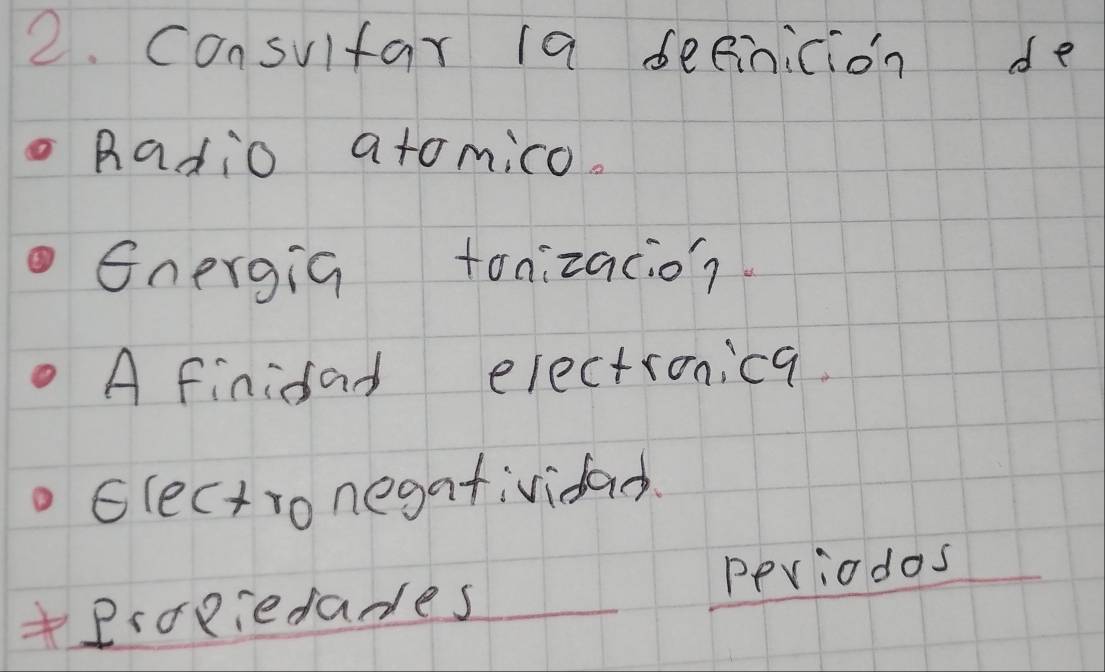 2. Consultar la definición de
• Radio atomico.
• Energia Ionización.
• Afinidad electronica.
• Electronegatividad.
* Propiedades periodos